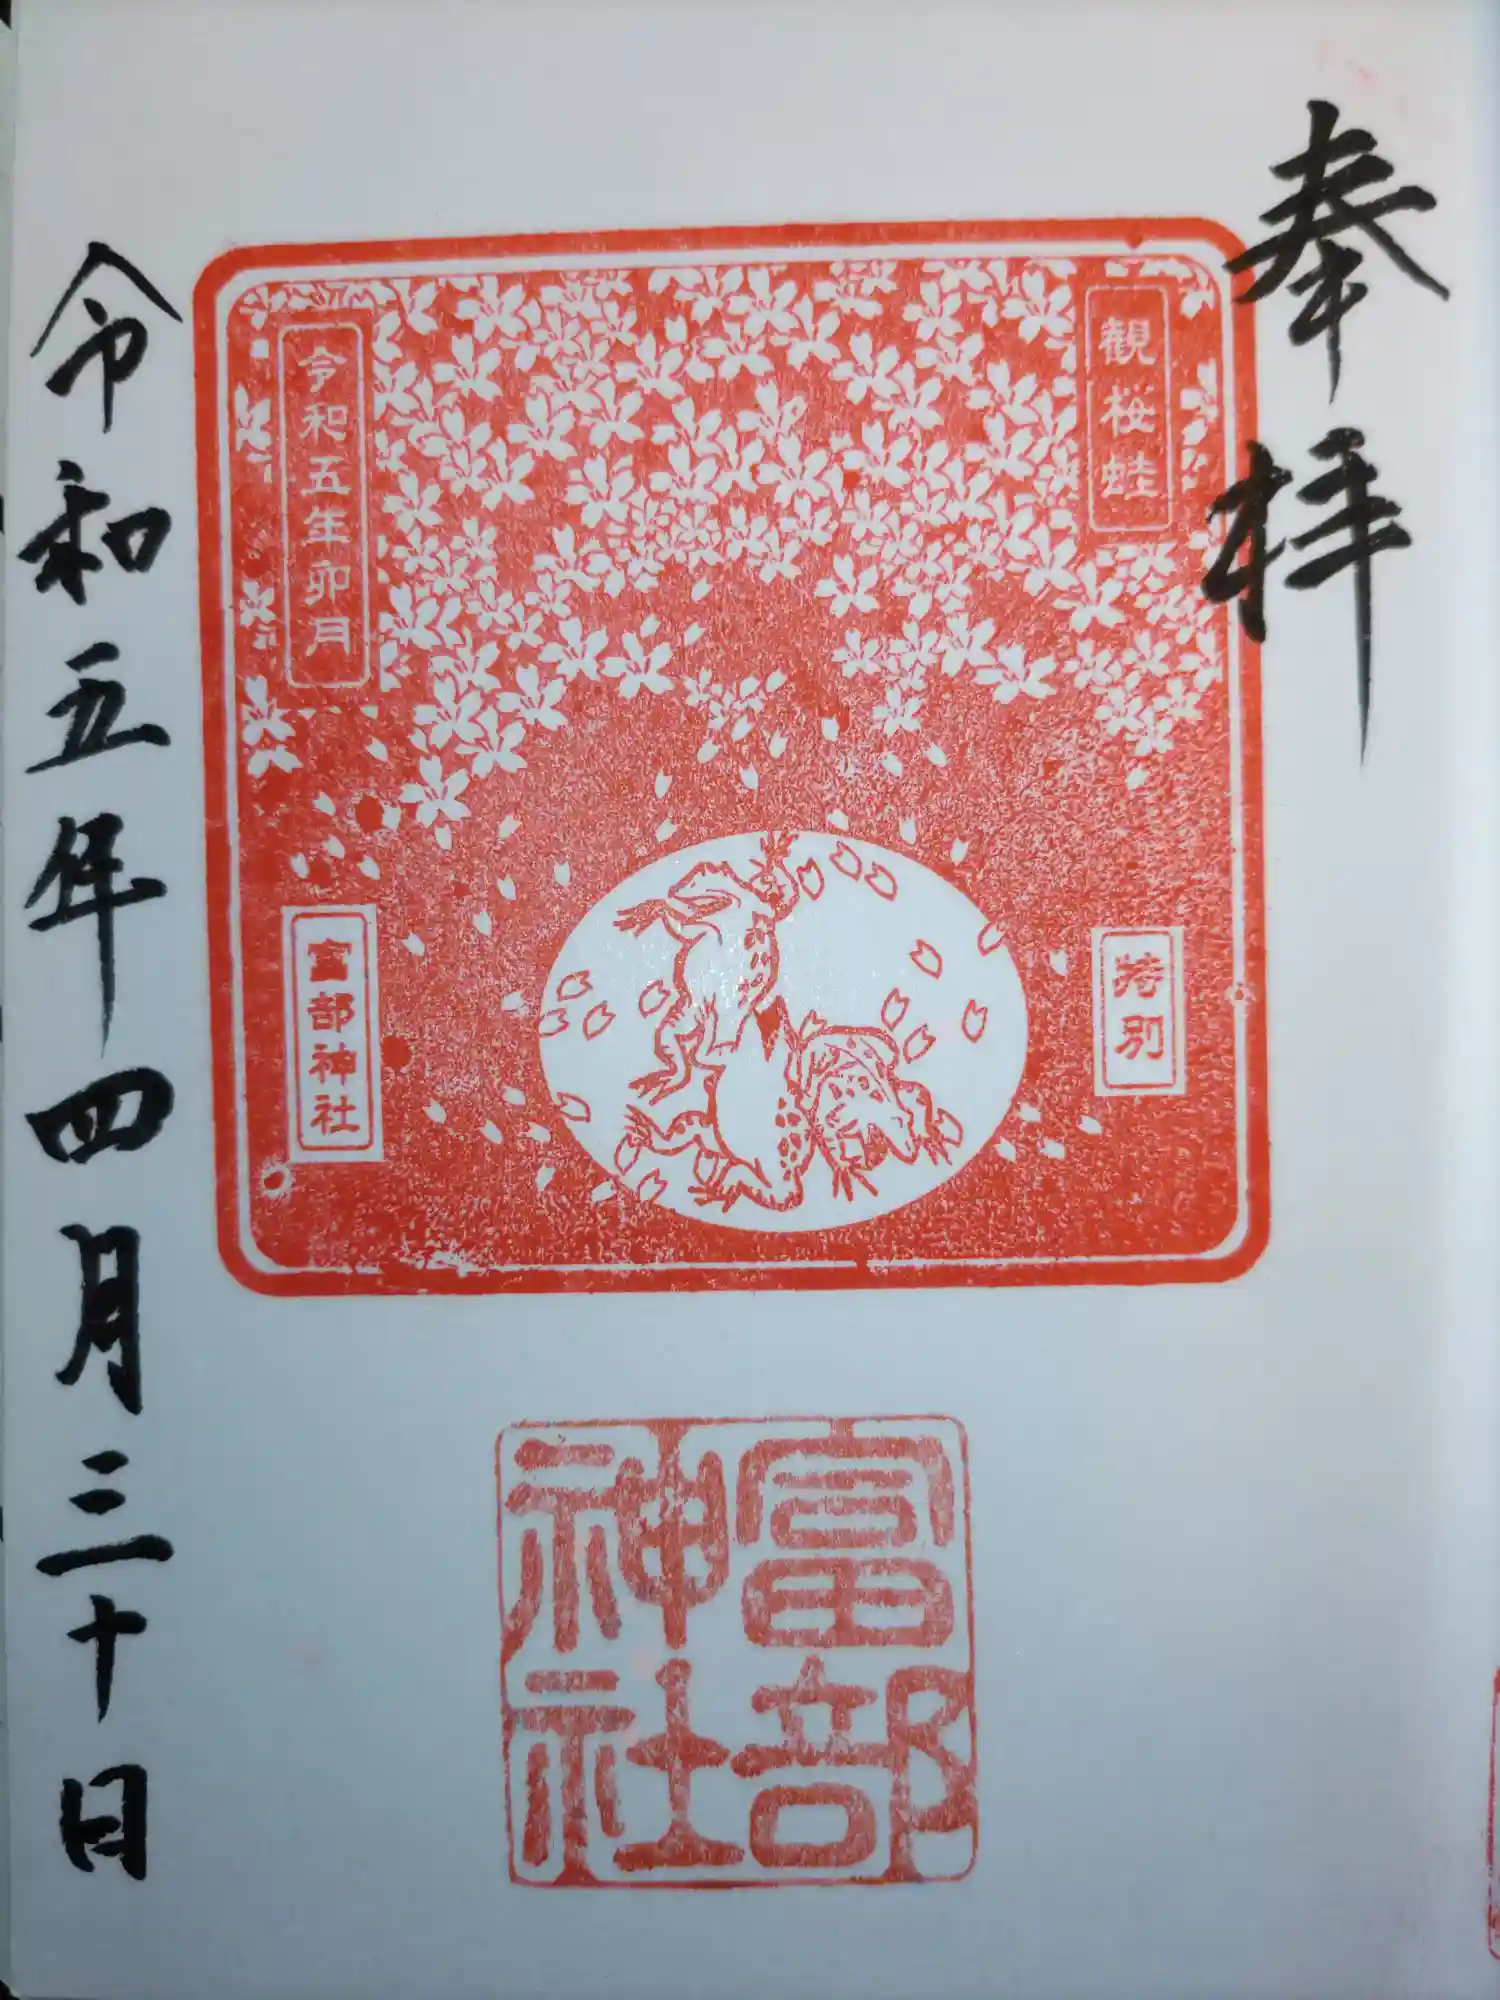 奉拝
観桜蛙
特別
令和五年卯月
富部神社
富部
神社
令和五年四月三十日